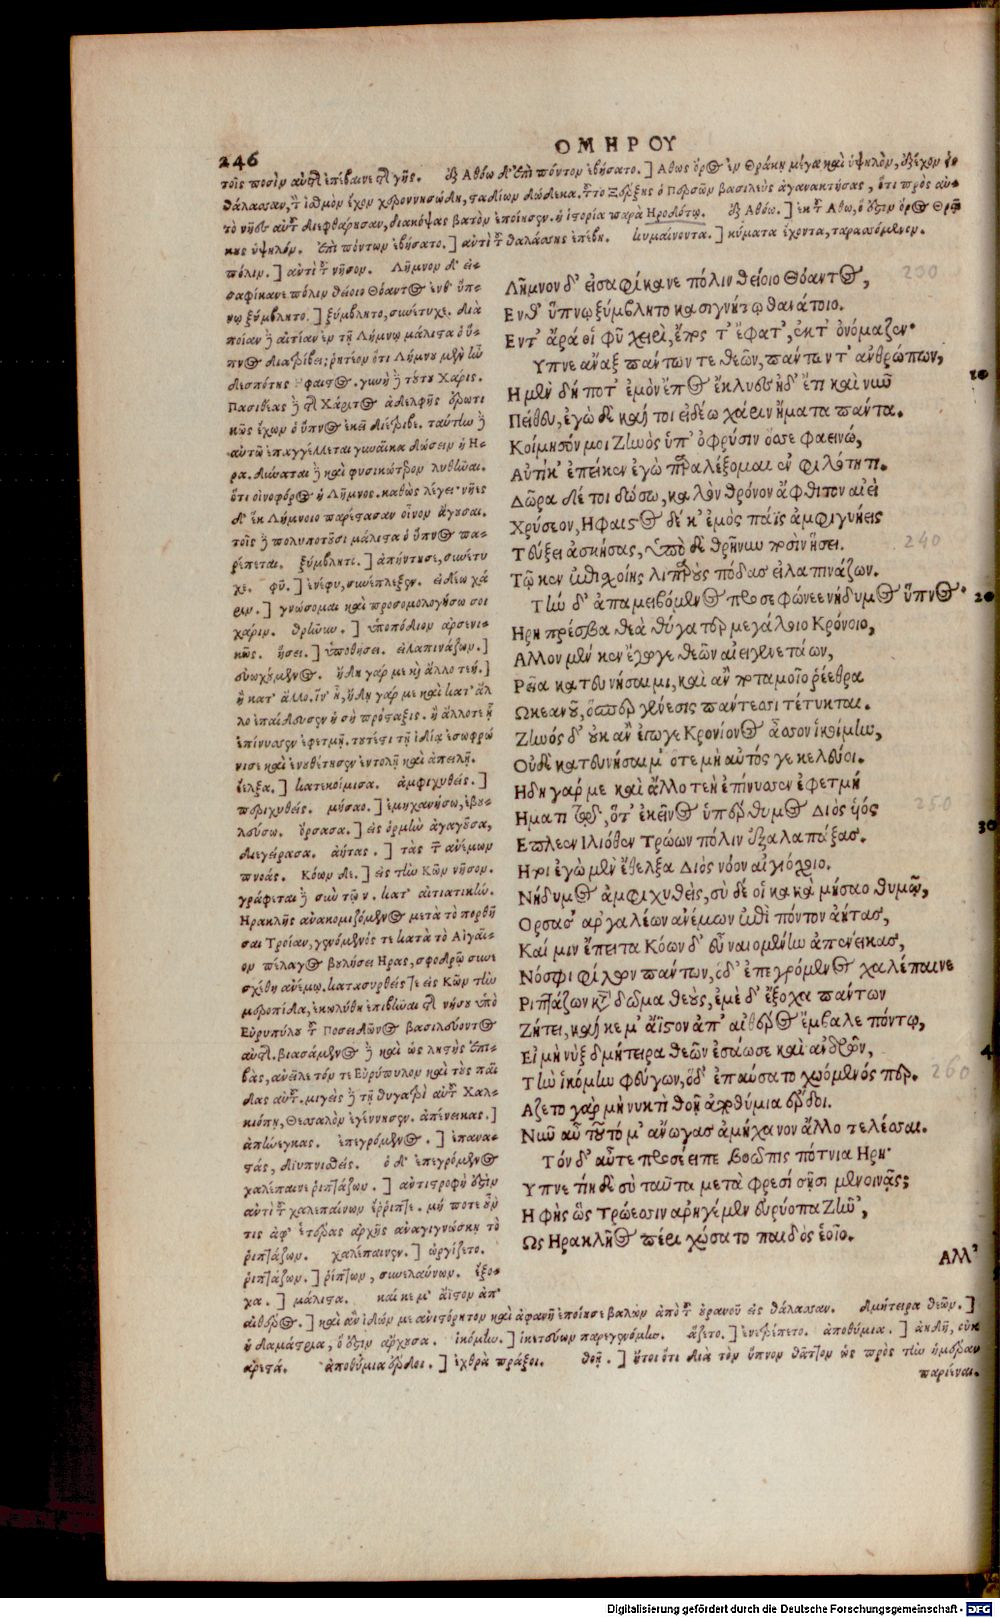 246
ΟΜΗΡΟΥ
τοῖς ποσὶν αὐτῆς ἐπέβαινε τῆς γῆς. Ἐξ Ἀθόω δ' ἐπὶ πόντον ἐβήσατο.] Ἄθως ὄρος ἐν Θράκῃ μέγα καὶ ὑψηλὸν,
θάλασσαν, ἰσθμὸν ἔχον χερσονησώδη, σταδίων δώδεκα. Ξέρξης ὁ Περσῶν βασιλεὺς ἀγανακτήσας, ὅτι πρὸς
διαφθάρησαν, διακόψας βατὸν ἐποίησεν. ἡ ἱστορία παρὰ Ἡροδότῳ. Ἐξ Ἀθόω.] ἐκ τοῦ Ἄθω, ὅ ἐστιν ὄρος
ὑψηλόν. Ἐπὶ πόντον ἐβήσατο.] ἀντὶ τοῦ θαλάσσης ἐπέβη. Κυμαίνοντα.] κύματα ἔχοντα, ταρασσόμενον.
πόλιν.] ἀντὶ τοῦ νῆσον. Λῆμνον δ' εἰ-
σαφίκανε πόλιν θείοιο Θόαντος ἔνθ' ὕπ-
νῳ ξύμβλητο.] ξύμβλητο, συνέτυχε. διὰ
ποίαν δὲ αἰτίαν ἐν τῇ Λήμνῳ μάλιστα ὁ ὕ-
πνος διατρίβει; ῥητέον ὅτι Λήμνου μὲν ἦν
δεσπότης Ἥφαιστος. γυνὴ δὲ τούτου Χάρις.
Πασιθέας δὲ τῆς Χάριτος ἀδελφῆς ἐρωτι
κῶς ἔχων ὁ ὕπνος ἐκεῖ διέτριβε. ταύτην δὲ
αὐτῷ ἐπαγγέλλεται γυναῖκα δώσειν ἡ Ἥ-
ρα. δύναται δὲ καὶ φυσικώτερον λυθῆναι.
ὅτι οἰνοφόρος ἡ Λῆμνος. καθὼς λέγει· νῆες
δ' ἐκ Λήμνοιο παρέστασαν οἶνον ἄγουσαι.
τοῖς δὲ πολυποτοῦσι μάλιστα ὁ ὕπνος πα-
ρέπεται. ξύμβλητο.] ἀπήντησε, συνέτυ
χε. φῦ.] ἐνέφυ, συνέπλεξεν. εἰδέω χά
ριν.] γνώσομαι καὶ προσομολογήσω σοι
χάριν. θρῆνυν.] ὑποπόδιον ἀρσενι-
κῶς. ἥσει.] ὑποθήσει. εἰλαπινάζων.]
εὐωχούμενος. ἤδη γάρ με καὶ ἄλλο τεὴ.]
ἢ κατ' ἄλλο. ἵν' ᾖ, ἤδη γάρ με καὶ κατ' ἄλ
λο ἐπαίδευσεν ἡ σὴ πρόσταξις. ἢ ἄλλοτε
ἐπίνυσσεν ἐφετμῇ. τουτέστι τῇ ἰδίᾳ ἐσωφρό
νισε καὶ ἐνουθέτησεν ἐντολῇ καὶ ἀπειλῇ.
ἔελξα.] κατεκοίμισα. ἀμφιχυθείς.]
περιχυθείς. μήσαο.] ἐμηχανήσω, ἐβου-
λεύσω. ὄρσασα.] εἰς ὁρμὴν ἀγαγοῦσα,
διεγείρασα. ἀήτας.] τὰς τῶν ἀνέμων
πνοάς. Κόων δε.] εἰς τὴν Κῶν νῆσον.
γράφεται δὲ σὺν τῷ ν. κατ' αἰτιατικήν.
Ἡρακλῆς ἀνακομιζόμενος μετὰ τὸ πορθῆ
σαι Τροίαν, γενόμενός τε κατὰ τὸ Αἰγαῖ-
ον πέλαγος βουλήσει Ἥρας, σφοδρῷ συνε
σχέθη ἀνέμῳ. κατασυρθεὶς δὲ εἰς Κῶν τὴν
μεροπίδα, ἐκωλύθη ἐπιβῆναι τῆς νήσου ὑπὸ
Εὐρυπύλου τοῦ Ποσειδῶνος βασιλεύοντος
αὐτῆς. βιασάμενος δὲ καὶ ὡς λῃστὴς ἐπι-
βὰς, ἀνεῖλε τόν τε Εὐρύπυλον καὶ τοὺς παῖ
δας αὐτοῦ. μιγεὶς δὲ τῇ θυγατρὶ αὐτοῦ Χαλ-
κιόπῃ, Θεσσαλὸν ἐγέννησεν. ἀπένεικας.]
ἀπήνεγκας. ἐπεγρόμενος.] ἐπανα-
στάς, διυπνισθείς. ὁ δ' ἐπεγρόμενος
χαλέπαινε ῥιπτάζων.] ἀντιστροφή ἐστιν
ἀντὶ τοῦ χαλεπαίνων ἐρρίπτει. μή ποτε οὖν
τις ἀφ' ἑτέρας ἀρχῆς ἀναγιγνώσκῃ τὸ
ῥιπτάζων. χαλέπαινεν.] ὠργίζετο.
ῥιπτάζων.] ῥίπτων, συνελαύνων. ἔξο-
χα.] μάλιστα. καί κε μ' ἄϊστον ἀπ'
αἰθέρος.] καὶ ἂν ἰδών με ἀνιστόρητον καὶ ἀφανῆ ἐποίησε βαλὼν ἀπὸ τοῦ οὐρανοῦ εἰς θάλασσαν. Δμήτειρα θεῶν.]
ἡ δαμάστρια, ὅ ἐστιν ἄρχουσα. ἱκόμην.] ἱκετεύων παρεγενόμην. ἅζετο.] ἐνετρέπετο. ἀποθύμια.] ἀηδῆ, οὐκ
ἀρεστά. ἀποθύμια ἔρδοι.] ἐχθρὰ πράξοι. θοῇ.] ἤτοι ὅτι διὰ τὸν ὕπνον θᾶττον ὡς πρὸς τὴν ἡμέραν
παριέναι.
Λῆμνον δ' εἰσαφίκανε πόλιν θείοιο Θόαντος, 230
Ενθ' ὕπνῳ ξύμβλητο κασιγνήτῳ θανάτοιο.
Εν τ' ἄρά οἱ φῦ χειρὶ, ἔπος τ' ἔφατ', ἔκ τ' ὀνόμαζεν·
Υπνε ἄναξ πάντων τε θεῶν, πάντων τ' ἀνθρώπων, 10
Η μὲν δή ποτ' ἐμὸν ἔπος ἔκλυες ἠδ' ἔτι καὶ νῦν
Πείθευ, ἐγὼ δὲ καί τοι εἰδέω χάριν ἤματα πάντα.
Κοίμησόν μοι Ζηνὸς ὑπ' ὀφρύσιν ὄσσε φαεινώ,
Αὐτίκ' ἐπεί κεν ἐγὼ παραλέξομαι ἐν φιλότητι.
Δῶρα δέ τοι δώσω, καλὸν θρόνον ἄφθιτον αἰεὶ
Χρύσεον, Ηφαιστος δέ κ' ἐμὸς πάϊς ἀμφιγυήεις
Τεύξει ἀσκήσας, ὑπὸ δὲ θρῆνυν ποσὶν ἥσει. 240
Τῷ κεν ἐπισχοίης λιπαροὺς πόδας εἰλαπινάζων.
Τὴν δ' ἀπαμειβόμενος προσεφώνεε νήδυμος ὕπνος· 20
Ηρη πρέσβα θεὰ θύγατερ μεγάλοιο Κρόνοιο,
Αλλον μέν κεν ἔγωγε θεῶν αἰειγενετάων,
Ρεῖα κατευνήσαιμι, καὶ ἂν ποταμοῖο ῥέεθρα
Ωκεανοῦ, ὅσπερ γένεσις πάντεσσι τέτυκται.
Ζηνός δ' οὐκ ἂν ἔγωγε Κρονίονος ἆσσον ἱκοίμην,
Οὐδὲ κατευνήσαιμ' ὅτε μὴ αὐτός γε κελεύοι.
Ηδη γάρ με καὶ ἄλλο τεὴ ἐπίνυσσεν ἐφετμή
Ηματι τῷδ', ὅτ' ἐκεῖνος ὑπέρθυμος Διὸς υἱός 250
Επλεεν Ιλιόθεν Τρώων πόλιν ἐξαλαπάξας. 30
Ητοι ἐγὼ μὲν ἔθελξα Διὸς νόον αἰγιόχοιο.
Νήδυμος ἀμφιχυθείς, σὺ δέ οἱ κακὰ μήσαο θυμῷ,
Ορσασ' ἀργαλέων ἀνέμων ἐπὶ πόντον ἀήτας,
Καί μιν ἔπειτα Κόων δ' εὖ ναιομένην ἀπένεικας,
Νόσφι φίλων πάντων, ὁ δ' ἐπεγρόμενος χαλέπαινε
Ριπτάζων κατὰ δῶμα θεούς, ἐμὲ δ' ἔξοχα πάντων
Ζήτει, καί κε μ' ἄϊστον ἀπ' αἰθέρος ἔμβαλε πόντῳ,
Εἰ μὴ νὺξ δμήτειρα θεῶν ἐσάωσε καὶ ἀνδρῶν, 4
Τὴν ἱκόμην φεύγων, ὁ δ' ἐπαύσατο χωόμενός περ. 260
Αζετο γὰρ μὴ νυκτὶ θοῇ ἀποθύμια ἔρδοι.
Νῦν αὖ τοῦτό μ' ἄνωγας ἀμήχανον ἄλλο τελέσσαι.
Τόν δ' αὖτε προσέειπε βοῶπις πότνια Ηρη·
Υπνε τίη δὲ σὺ ταῦτα μετὰ φρεσί σῇσι μενοινᾷς;
Η φῂς ὣς Τρώεσσιν ἀρηγέμεν εὐρύοπα Ζῆν',
Ως Ηρακλῆος πέρι χώσατο παιδὸς ἑοῖο.
Αλλ'
Digitalisierung gefördert durch die Deutsche Forschungsgemeinschaft - DFG